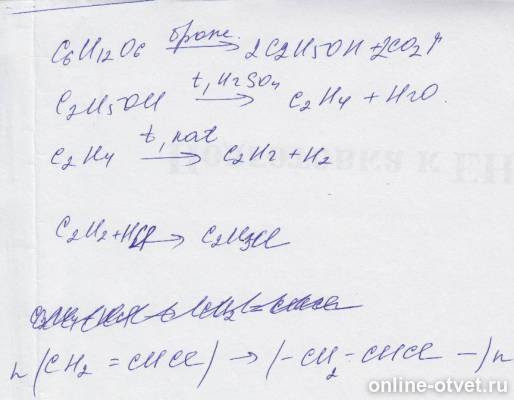 C6H12O6 броже. → 2C2H5OH + 2CO2↑
C2H5OH t, H2SO4 → C2H4 + H2O
C2H4 t, kat → C2H2 + H2
C2H2 + HCl → C2H3Cl
n(CH2 = CHCl) → (-CH2 - CHCl -)n
online-otvet.ru